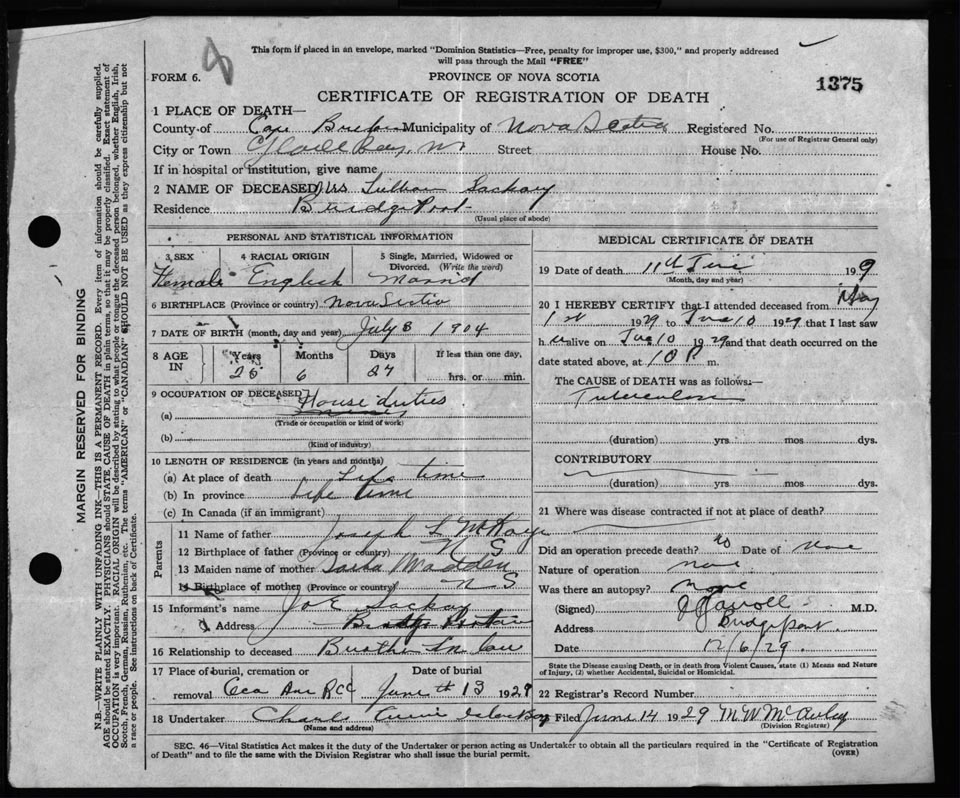 This form if placed in an envelope, marked "Dominion Statistics—Free, penalty for improper use, $300," and properly addressed
will pass through the Mail "FREE"
FORM 6.
PROVINCE OF NOVA SCOTIA
1375
CERTIFICATE OF REGISTRATION OF DEATH
1 PLACE OF DEATH—
County of Cape Breton Municipality of Nova Scotia Registered No.
(For use of Registrar General only)
City or Town Glace Bay, Street House No.
If in hospital or institution, give name
2 NAME OF DECEASED Mrs Sackay
Residence Bridge Port
(Usual place of abode)
PERSONAL AND STATISTICAL INFORMATION
3 SEX 4 RACIAL ORIGIN 5 Single, Married, Widowed or Divorced. (Write the word)
Female English Married
6 BIRTHPLACE (Province or country) Nova Scotia
7 DATE OF BIRTH (month, day and year) July 8 1904
8 AGE IN Years Months Days If less than one day,
6 27 hrs. or min.
9 OCCUPATION OF DECEASED House duties
(a)
(Trade or occupation or kind of work)
(b)
(Kind of industry)
10 LENGTH OF RESIDENCE (in years and months)
(a) At place of death Life time
(b) In province Life time
(c) In Canada (if an immigrant)
Parents
11 Name of father Joseph L McKay
12 Birthplace of father (Province or country) N S
13 Maiden name of mother Madden
14 Birthplace of mother (Province or country) N S
15 Informant's name Joe Sackay
Address
16 Relationship to deceased Brother in law
17 Place of burial, cremation or removal Date of burial
June 13 1929
18 Undertaker Charles
(Name and address)
MEDICAL CERTIFICATE OF DEATH
19 Date of death 11th June 19 9
(Month, day and year)
20 I HEREBY CERTIFY that I attended deceased from May
1st 1929 to June 10 1929 that I last saw
h alive on June 10 1929 and that death occurred on the
date stated above, at 10 P m.
The CAUSE OF DEATH was as follows:—
Tuberculosis
(duration) yrs mos dys.
CONTRIBUTORY
(duration) yrs mos dys.
21 Where was disease contracted if not at place of death?
Did an operation precede death? no Date of none
Nature of operation none
Was there an autopsy? none
(Signed) M.D.
Address Bridgeport
Date 12/6/29.
State the Disease causing Death, or in death from Violent Causes, state (1) Means and Nature
of Injury, (2) whether Accidental, Suicidal or Homicidal.
22 Registrar's Record Number
Filed June 14 1929 M W McAuley
(Division Registrar)
SEC. 46—Vital Statistics Act makes it the duty of the Undertaker or person acting as Undertaker to obtain all the particulars required in the "Certificate of Registration
of Death" and to file the same with the Division Registrar who shall issue the burial permit.
(OVER)
MARGIN RESERVED FOR BINDING
N.B.—WRITE PLAINLY WITH UNFADING INK—THIS IS A PERMANENT RECORD. Every item of information should be carefully supplied.
AGE should be stated EXACTLY. PHYSICIANS should STATE, CAUSE OF DEATH in plain terms, so that it may be properly classified. Exact statement of
OCCUPATION is very important. RACIAL ORIGIN will be described by stating to what people or tongue the deceased person belonged, whether English, Irish,
Scotch, French, German, Russian, Ruthenian, etc. The terms "AMERICAN" or "CANADIAN" SHOULD NOT BE USED as they express citizenship but not
a race or people. See instructions on back of Certificate.